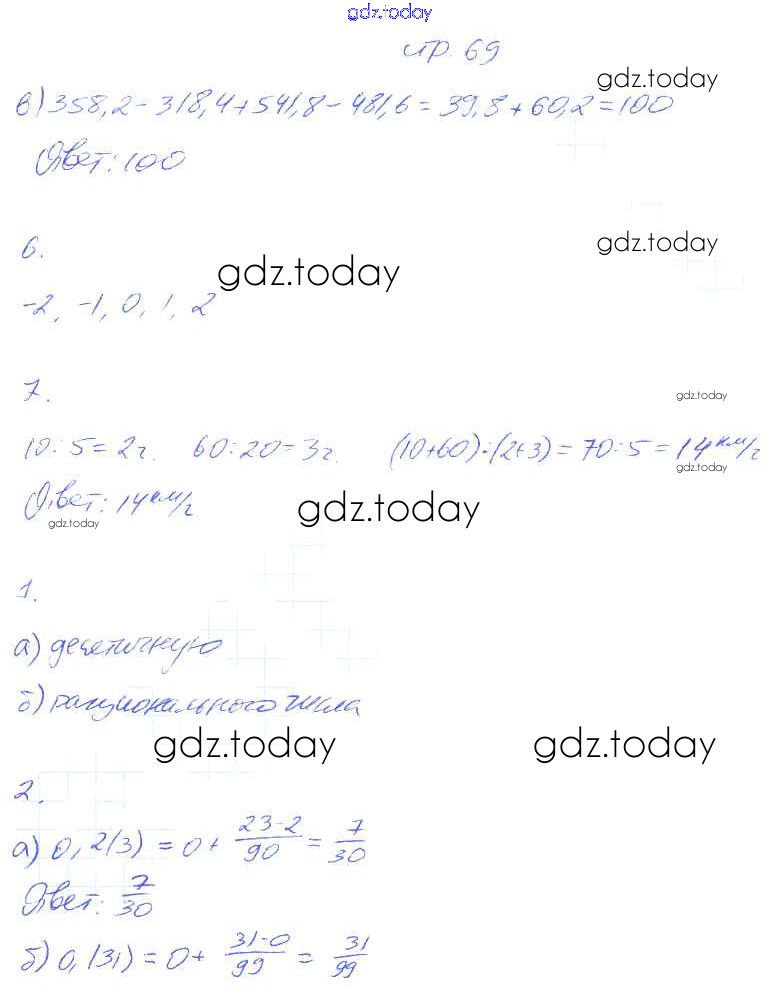 gdz.today
стр. 69
gdz.today
в) 358,2 - 318,4 + 541,8 - 481,6 = 39,8 + 60,2 = 100
Ответ: 100
6.
gdz.today
gdz.today
-2, -1, 0, 1, 2
7.
gdz.today
10 : 5 = 2ч. 60 : 20 = 3ч. (10+60) : (2+3) = 70 : 5 = 14 км/ч
gdz.today
Ответ: 14 км/ч
gdz.today
gdz.today
1.
а) десятичную
б) рационального числа
gdz.today gdz.today
2.
а) 0,2(3) = 0 + 23-2/90 = 7/30
Ответ: 7/30
б) 0,(31) = 0 + 31-0/99 = 31/99